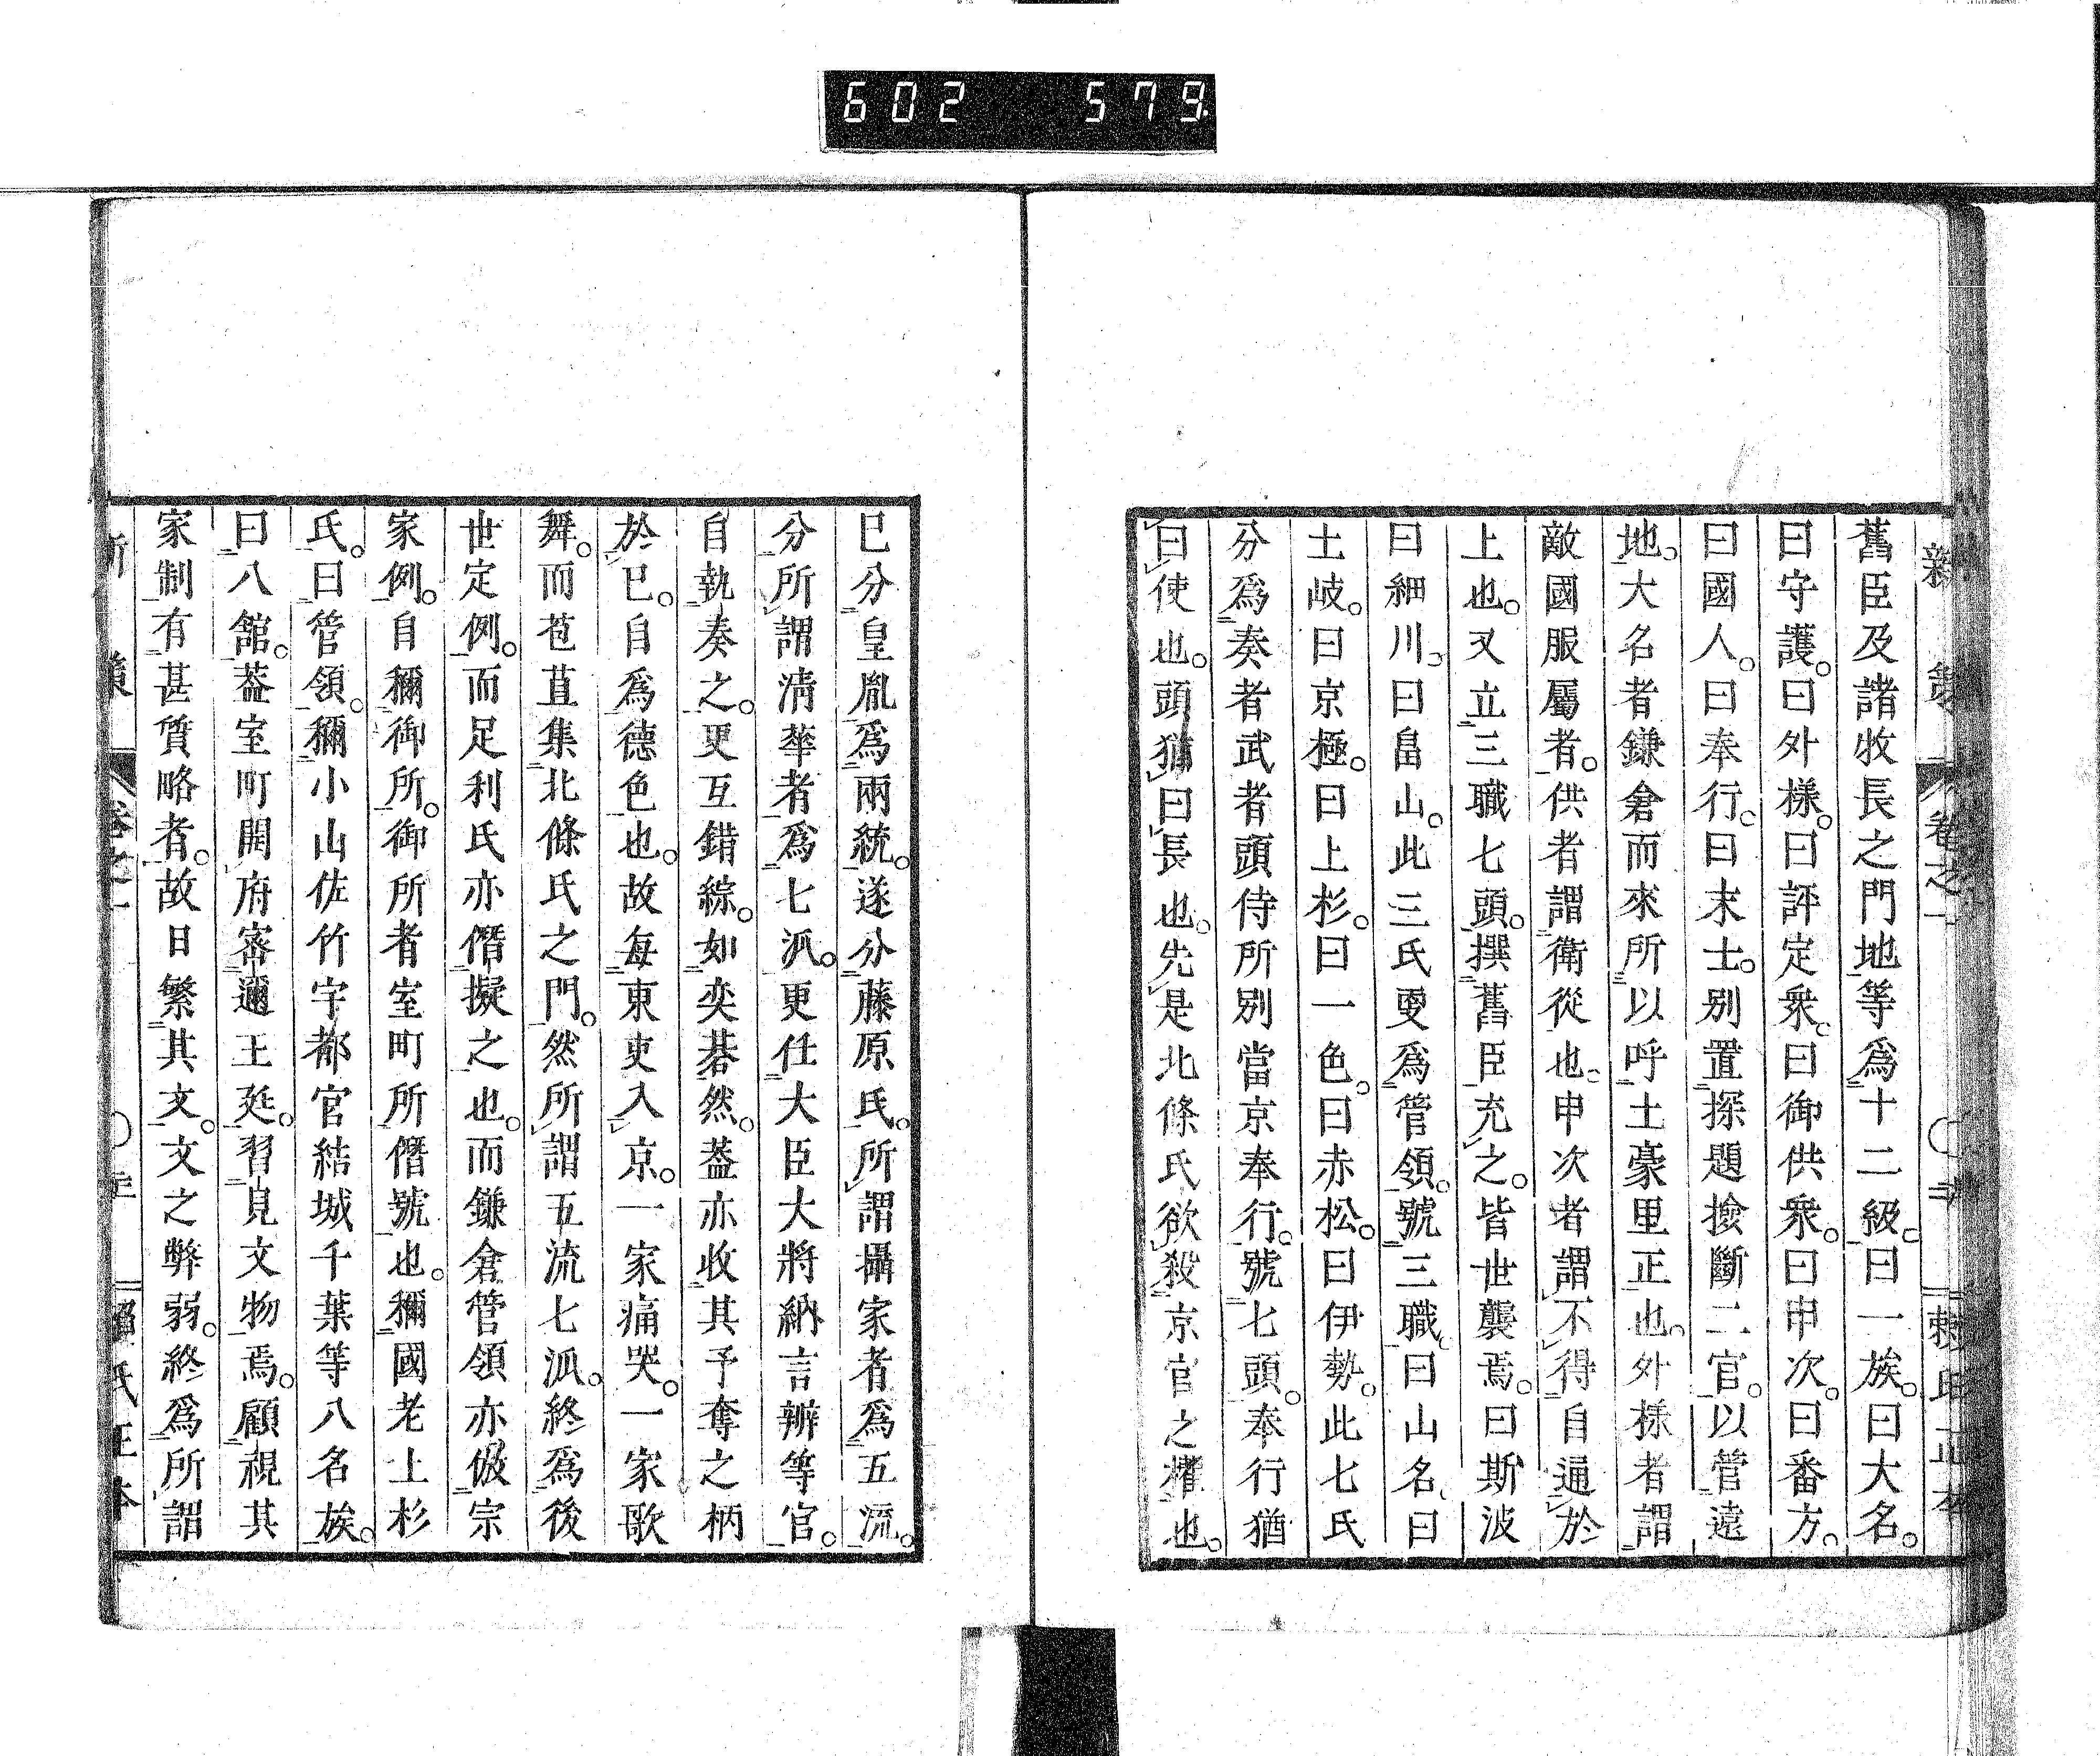 602 579
新策 卷之一 ○ 賴氏正本
舊臣及諸牧長之門地等爲十二級。曰一族。曰大名。
曰守護。曰外樣。曰評定衆。曰御供衆。曰申次。曰番方。
曰國人。曰奉行。曰末士。別置探題撿斷二官。以管遠
地。大名者鎌倉而來所以呼土豪里正也。外樣者謂
敵國服屬者。供者謂衛從也。申次者謂不得自通於
上也。又立三職七頭。撰舊臣充之。皆世襲焉。曰斯波
曰細川。曰畠山。此三氏更爲管領。號三職。曰山名。曰
土岐。曰京極。曰上杉。曰一色。曰赤松。曰伊勢。此七氏
分爲奏者武者頭侍所別當京奉行。號七頭。奉行猶
曰使也。頭猶曰長也。先是北條氏欲殺京官之權也。
已分皇胤爲兩統。遂分藤原氏。所謂攝家者爲五流。
分所謂淸華者爲七派。更任大臣大將納言辨等官。
自執奏之。更互錯綜。如奕棊然。葢亦收其予奪之柄
於已。自爲德色也。故每東吏入京。一家痛哭。一家歌
舞。而苞苴集北條氏之門。然所謂五流七派。終爲後
世定例。而足利氏亦僭擬之也。而鎌倉管領亦倣宗
家例。自稱御所。御所者室町所僭號也。稱國老上杉
氏。曰管領。稱小山佐竹宇都宮結城千葉等八名族。
曰八館。葢室町開府密邇王廷。習見文物焉。顧視其
家制有甚質略者。故日繁其文。文之弊弱。終爲所謂
新策 卷之一 ○ 賴氏正本